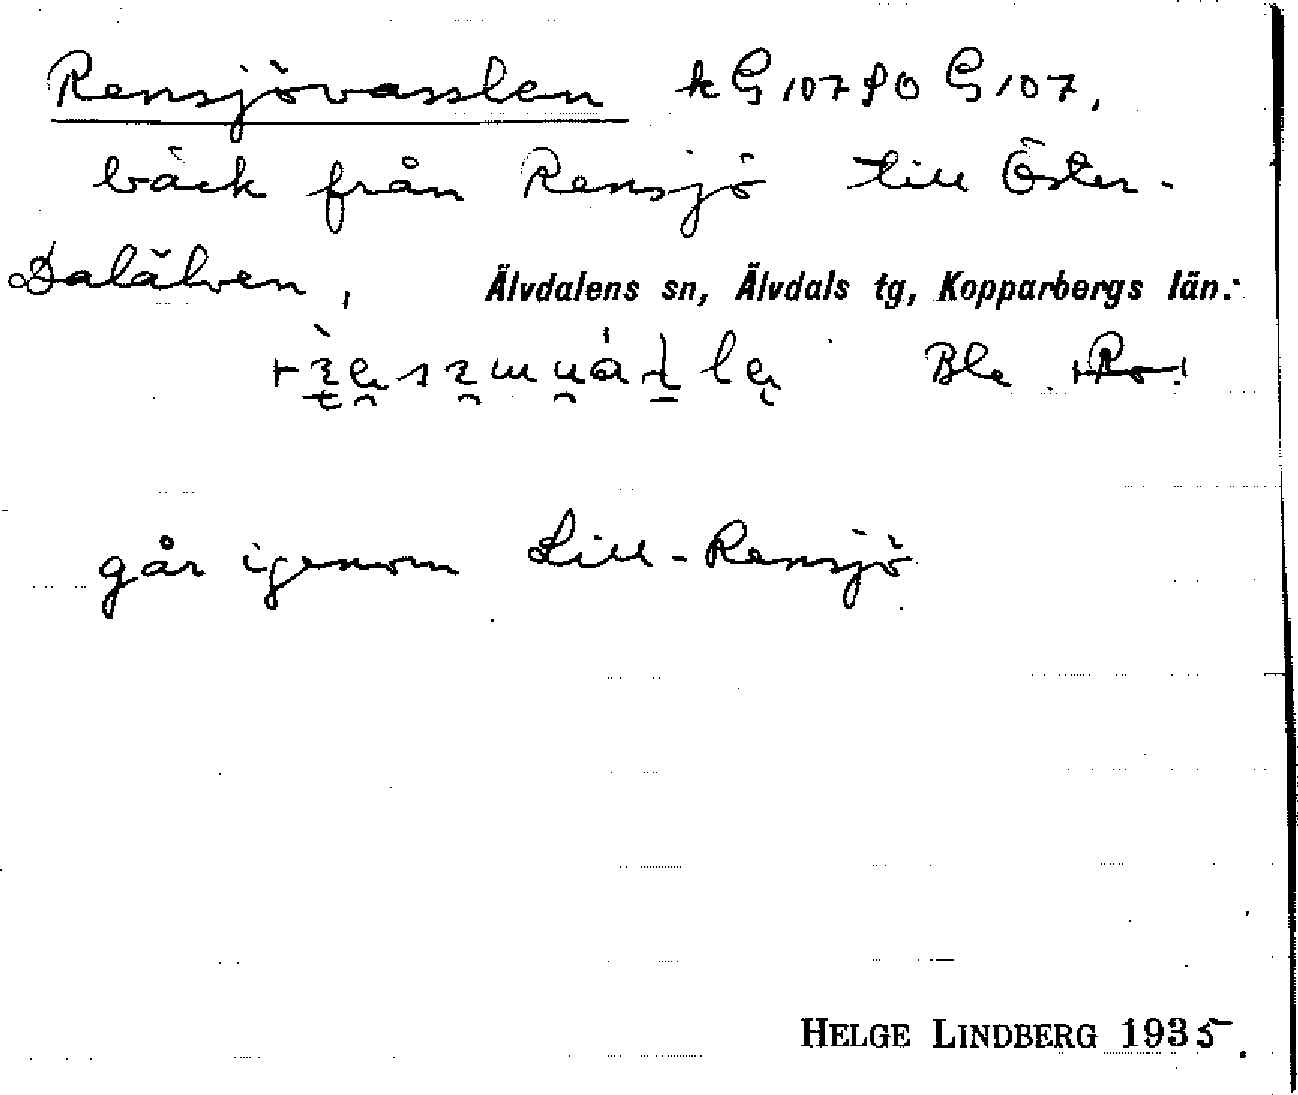 Rensjövasslen k G 107 PO G 107,
bäck från Rensjö till Öster-
Dalälven, Älvdalens sn, Älvdals tg, Kopparbergs län.
Ble
går igenom Lill-Rensjö
HELGE LINDBERG 1935.